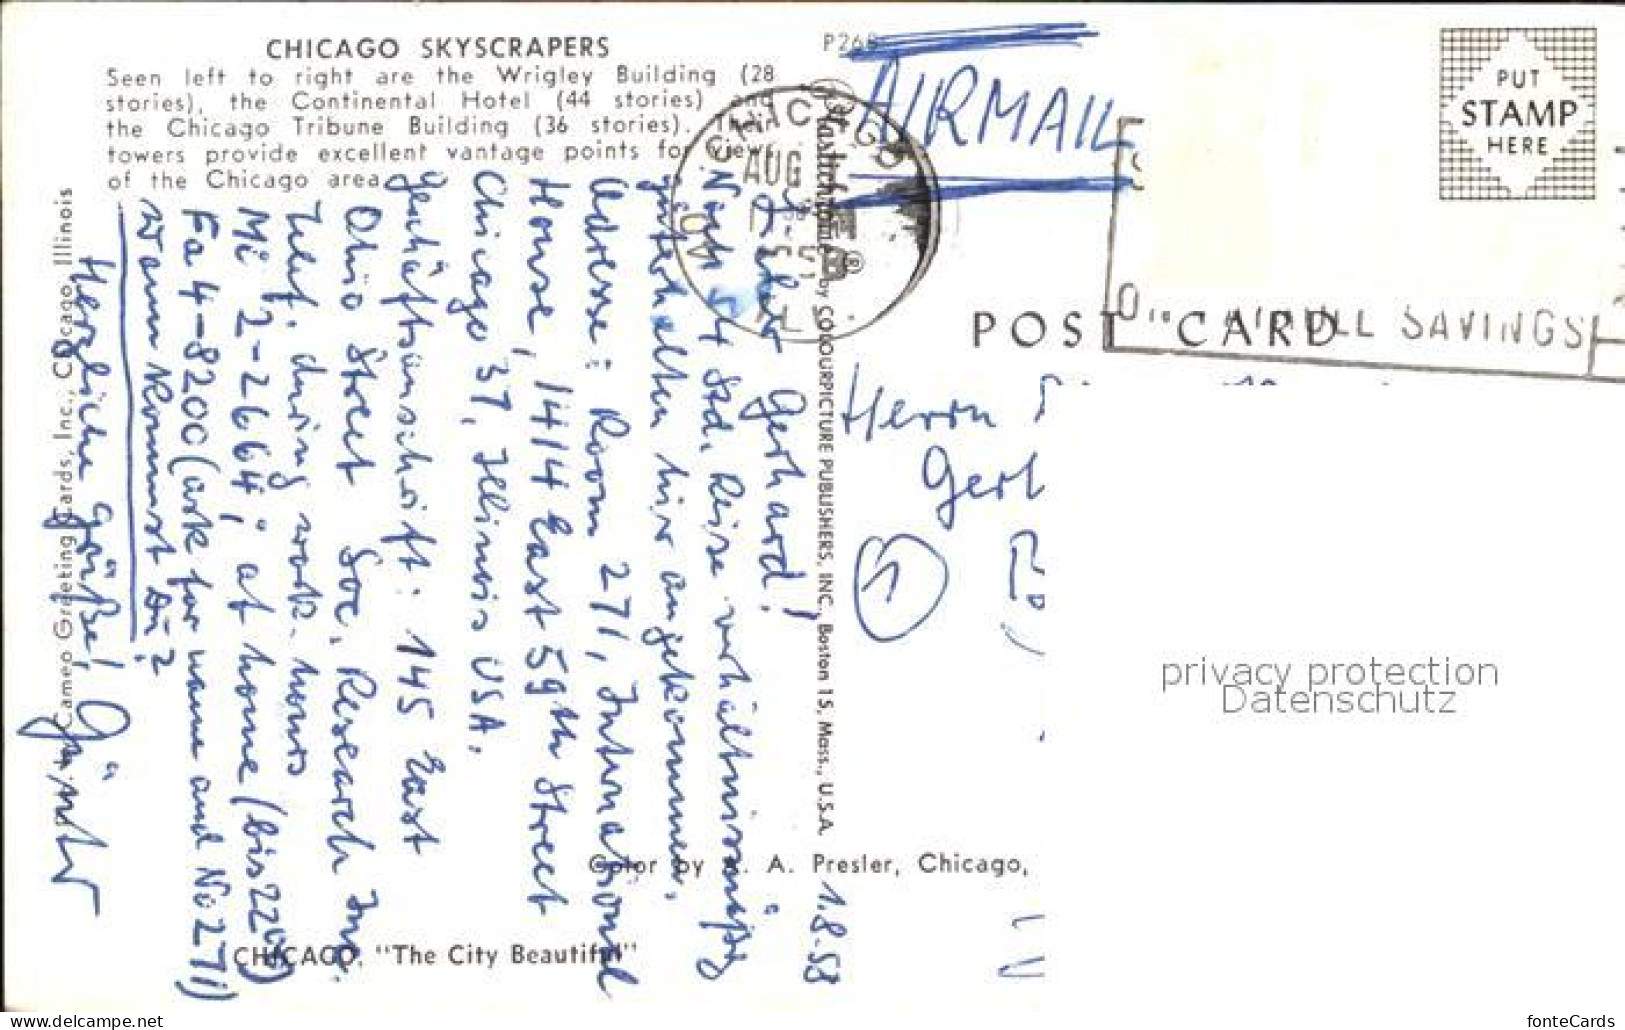 CHICAGO SKYSCRAPERS
Seen left to right are the Wrigley Building (28
stories), the Continental Hotel (44 stories) and
the Chicago Tribune Building (36 stories). Their
towers provide excellent vantage points for views
of the Chicago area.
P268
AIRMAIL
PUT
STAMP
HERE
CHICAGO
AUG
ILL
SAVINGS
POST CARD
1.8.58
Lieber Gerhard!
Nach 84 Std. Reise verhältnismäßig
gut erhalten hier angekommen.
Adresse: Room 271, International
House, 1414 East 59th Street
Chicago 37, Illinois USA.
Geschäftsanschrift: 145 East
Ohio Street Soc. Research Inc.
Telef. during work. hours
Mi 2-2664; at home (bis 2200)
Fa 4-8200 (ask for name and No 271)
Wann kommst Du?
Herzliche Grüße! Günter
Cameo Greeting Cards, Inc., Chicago, Illinois
Plastichrome® by COLOURPICTURE PUBLISHERS, INC., Boston 15, Mass., U.S.A.
Herrn
Gerh
1
Color by A. Presler, Chicago,
CHICAGO, "The City Beautiful"
privacy protection
Datenschutz
www.delcampe.net
fonteCards